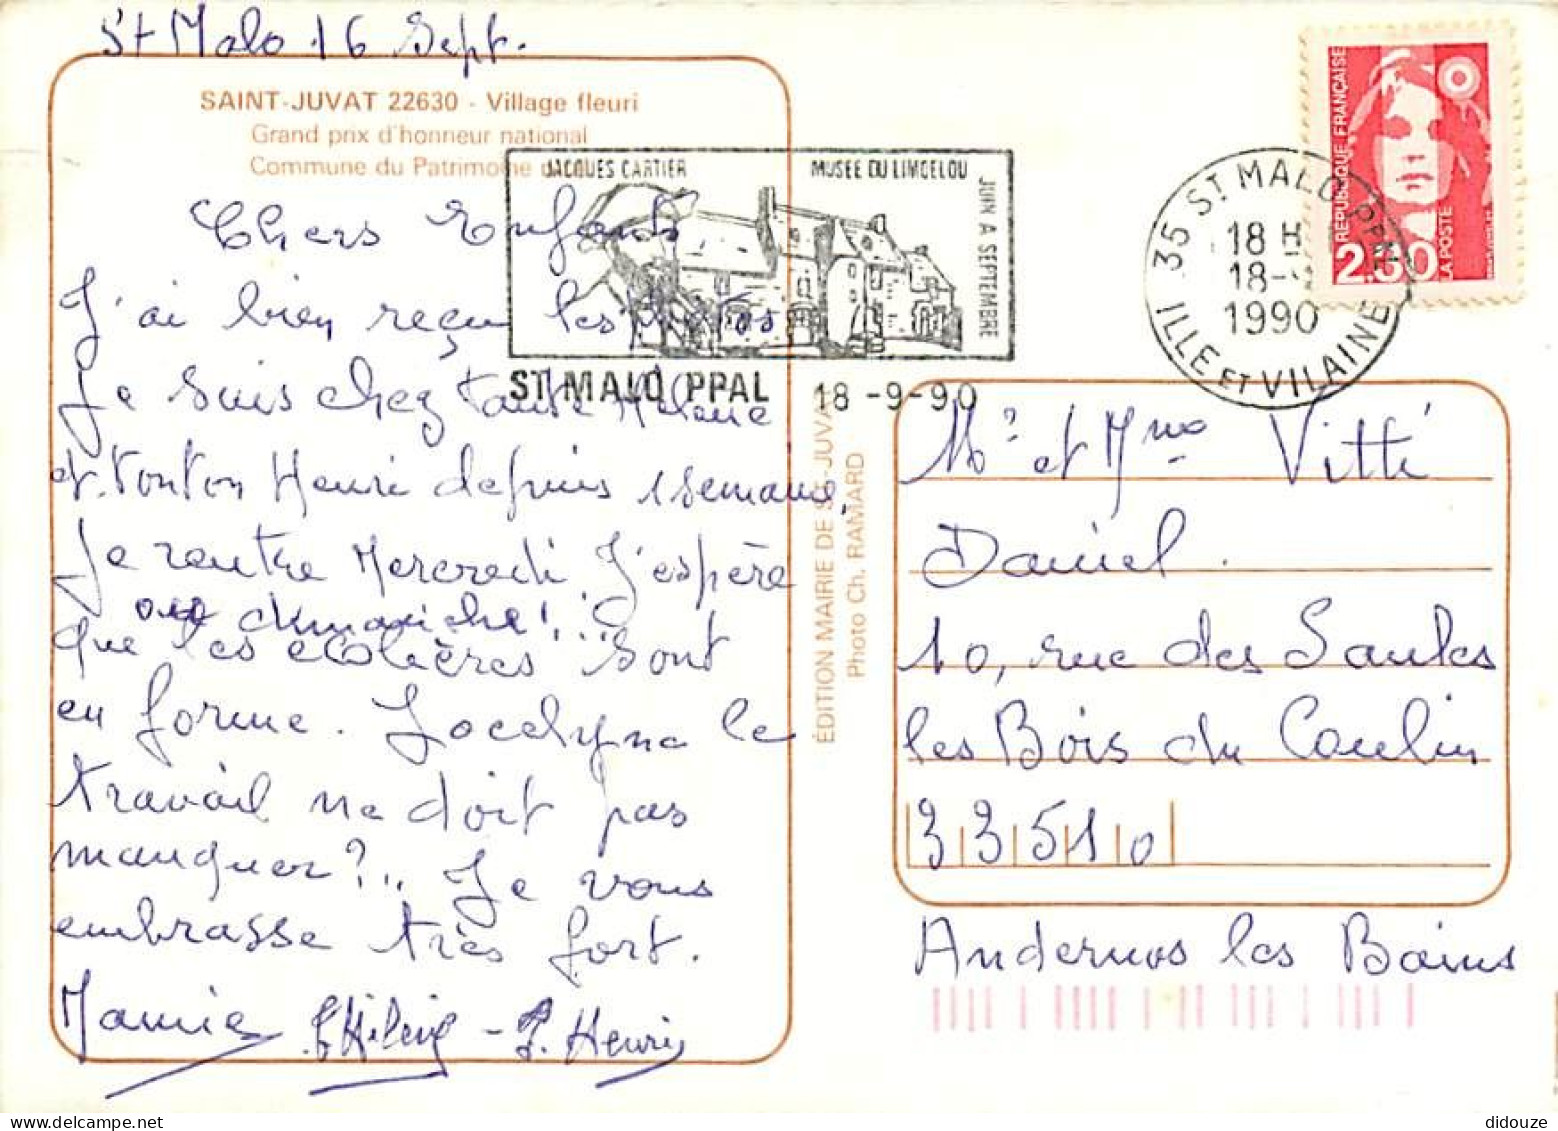 St Malo 16 Sept.
SAINT-JUVAT 22630 - Village fleuri
Grand prix d'honneur national
Commune du Patrimoine
Chers Enfants
J'ai bien reçu les photos
Je suis chez tante Hélène
et tonton Henri depuis 1 semaine,
Je rentre Mercredi J'espère
ou dimanche!...
que les écolières sont
en forme. Jocelyne le
travail ne doit pas
manquer?.. Je vous
embrasse très fort.
Mamie T Hélène - T. Henri
JACQUES CARTIER MUSEE DU LIMOELOU
JUIN A SEPTEMBRE
ST MALO PPAL 18-9-90
35 ST MALO PPAL
18 H
18-
1990
ILLE ET VILAINE
REPUBLIQUE FRANÇAISE
2.30
LA POSTE
ÉDITION MAIRIE DE ST-JUVAT
Photo Ch. RAMARD
Mr et Mme Vitté
Daniel.
10, rue des Saules
les Bois du Coulin
33510
Andernos les Bains
didouze